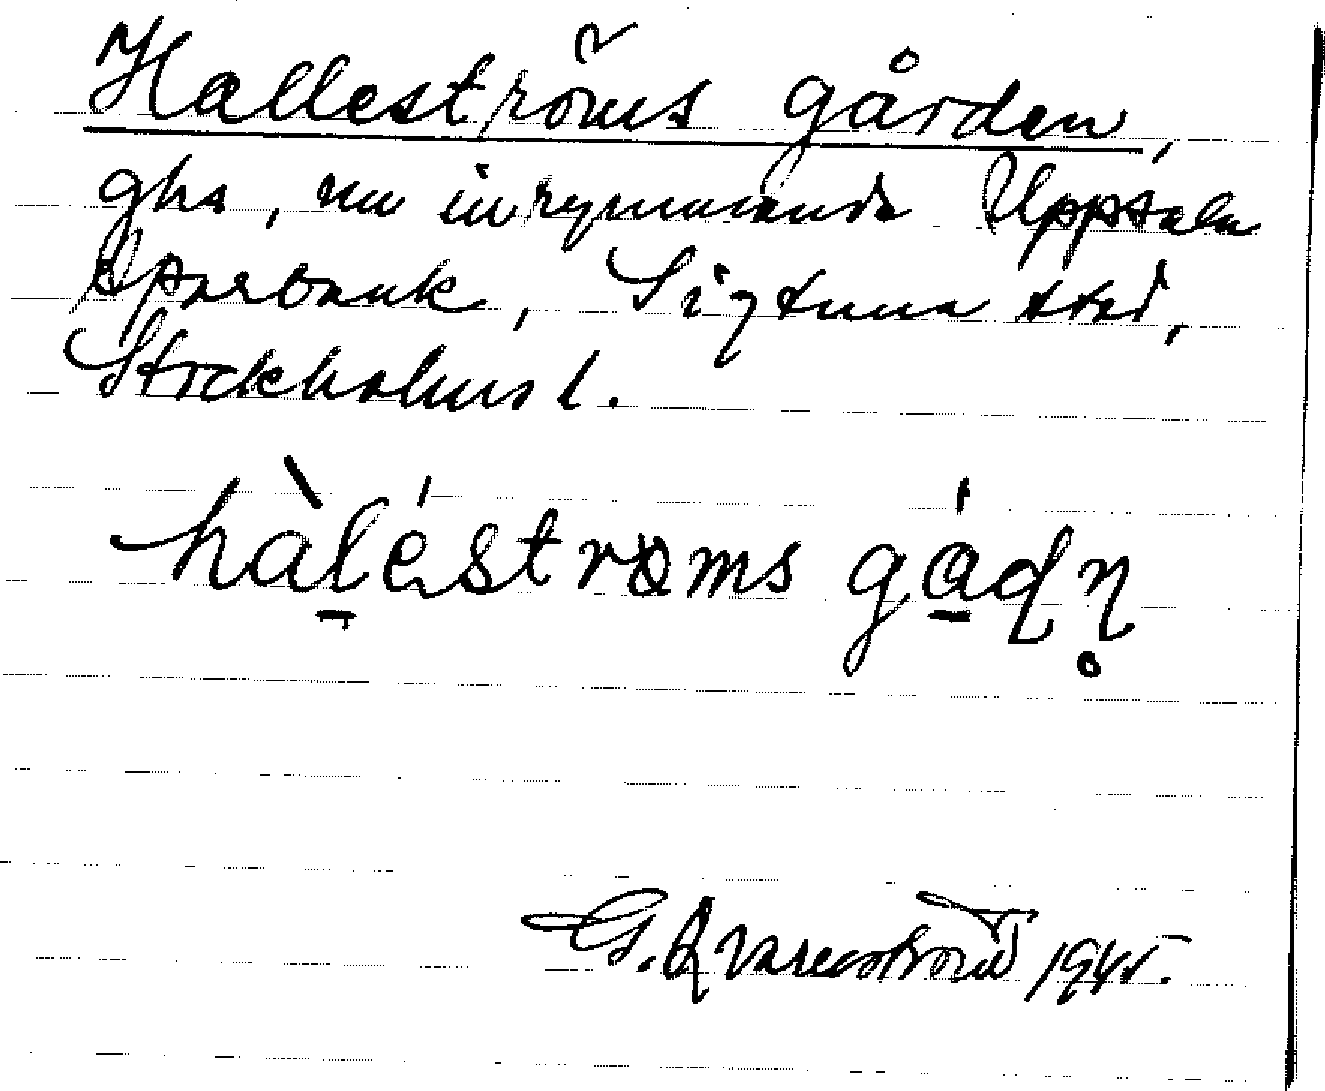 Halleströms gården,
ghs, nu inrymmande Uppsala
Sparbank, Sigtuna stad,
Stockholms l.
hàlèstrøms gádn̥
G. Qvarnström 1945.